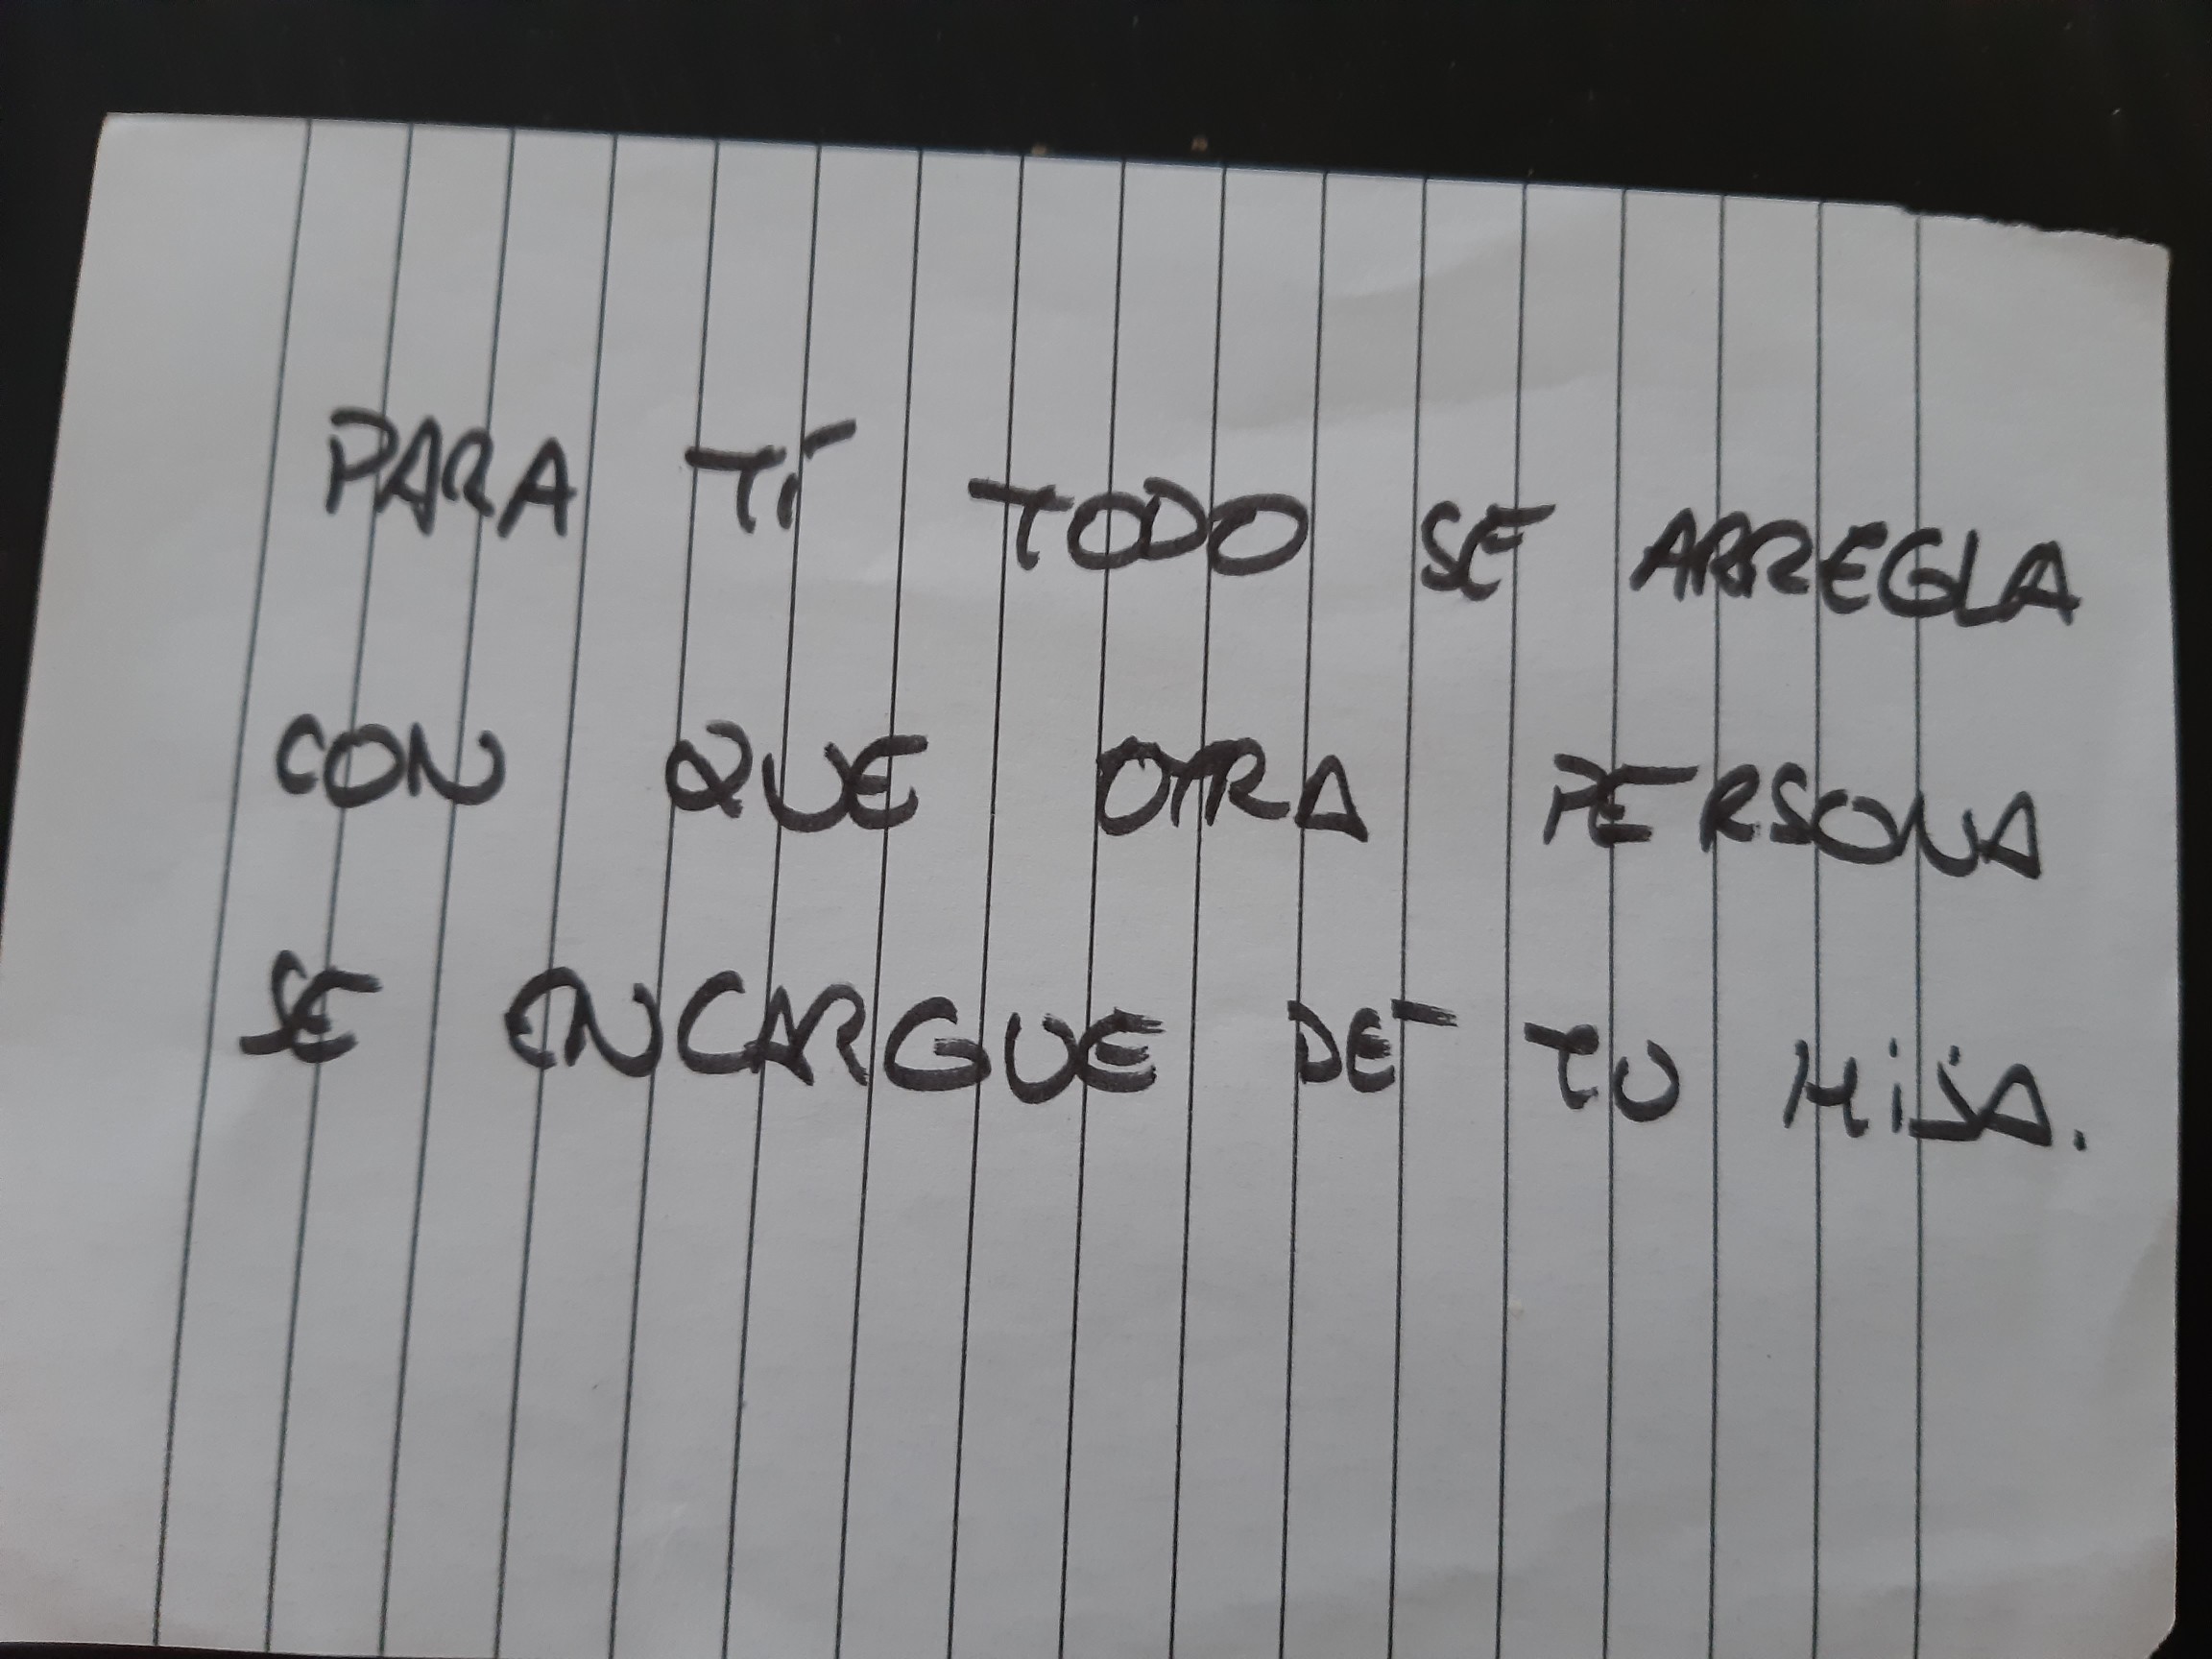 PARA TÍ TODO SE ARREGLA
CON QUE OTRA PERSONA
SE ENCARGUE DE TU HIJA.